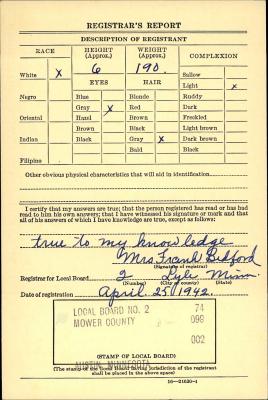 REGISTRAR'S REPORT
DESCRIPTION OF REGISTRANT
RACE HEIGHT (Approx.) WEIGHT (Approx.) COMPLEXION
6 190
White X EYES HAIR Sallow
Light x
Negro Blue Blonde Ruddy
Gray X Red Dark
Oriental Hazel Brown Freckled
Brown Black Light brown
Indian Black Gray X Dark brown
Bald Black
Filipino
Other obvious physical characteristics that will aid in identification
I certify that my answers are true; that the person registered has read or has had
read to him his own answers; that I have witnessed his signature or mark and that
all of his answers of which I have knowledge are true, except as follows:
true to my knowledge
Mrs Frank Bedford
(Signature of registrar)
Registrar for Local Board 2 Lyle Minn.
(Number) (City or county)
Date of registration April 25 1942.
LOCAL BOARD NO. 2 74
MOWER COUNTY 099
002
AUSTIN, MINNESOTA
(STAMP OF LOCAL BOARD)
(The stamp of the Local Board having jurisdiction of the registrant
shall be placed in the above space)
16—21630-1